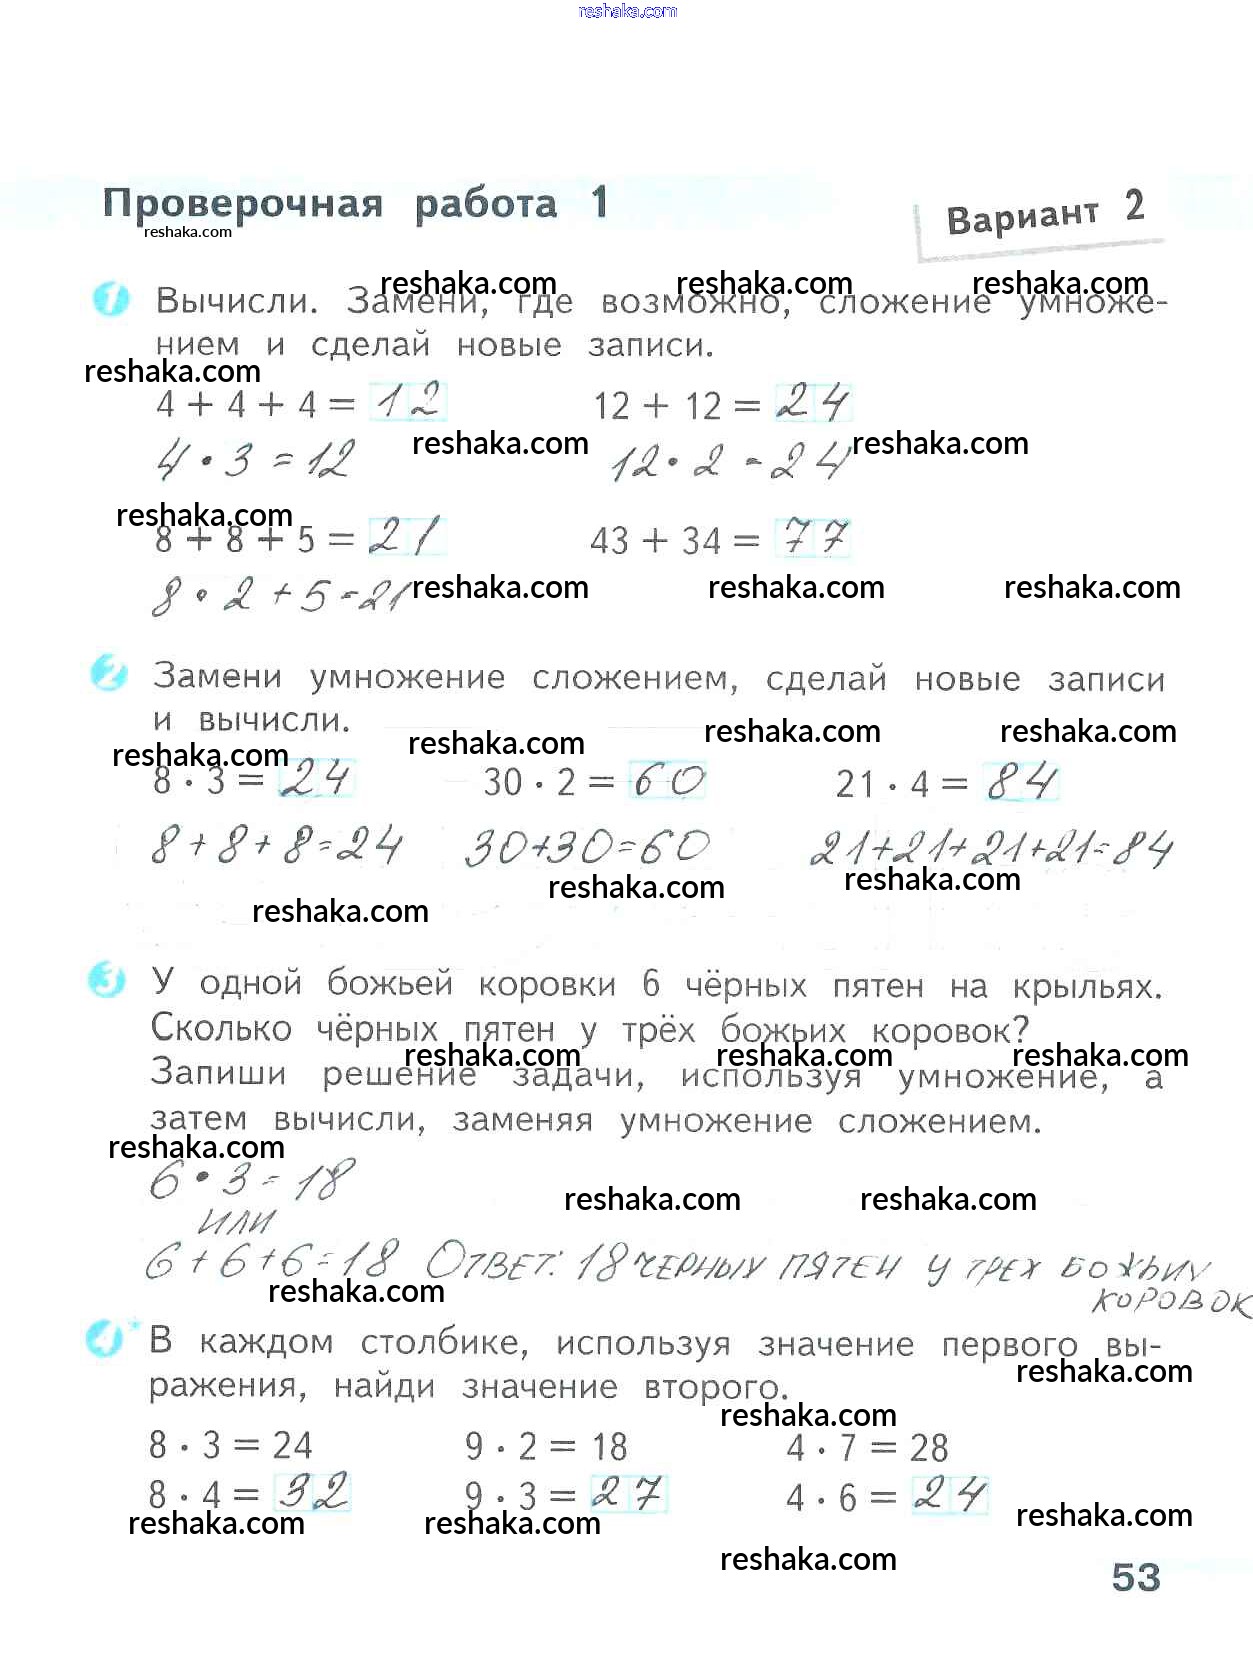 reshaka.com
Проверочная работа 1
reshaka.com
Вариант 2
reshaka.com reshaka.com reshaka.com
1 Вычисли. Замени, где возможно, сложение умноже-
нием и сделай новые записи.
reshaka.com
4 + 4 + 4 = 12 12 + 12 = 24
reshaka.com reshaka.com
4 · 3 = 12 12 · 2 = 24
reshaka.com
8 + 8 + 5 = 21 43 + 34 = 77
reshaka.com reshaka.com reshaka.com
8 · 2 + 5 = 21
2 Замени умножение сложением, сделай новые записи
и вычисли.
reshaka.com reshaka.com reshaka.com reshaka.com
8 · 3 = 24 30 · 2 = 60 21 · 4 = 84
8 + 8 + 8 = 24 30+30=60 21+21+21+21=84
reshaka.com reshaka.com reshaka.com
3 У одной божьей коровки 6 чёрных пятен на крыльях.
Сколько чёрных пятен у трёх божьих коровок?
reshaka.com reshaka.com reshaka.com
Запиши решение задачи, используя умножение, а
затем вычисли, заменяя умножение сложением.
reshaka.com
6 · 3 = 18
reshaka.com reshaka.com
или
6 + 6 + 6 = 18 Ответ: 18 черных пятен у трех божьих
коровок
reshaka.com
4* В каждом столбике, используя значение первого вы-
reshaka.com
ражения, найди значение второго.
reshaka.com
8 · 3 = 24 9 · 2 = 18 4 · 7 = 28
8 · 4 = 32 9 · 3 = 27 4 · 6 = 24
reshaka.com reshaka.com reshaka.com
reshaka.com
53